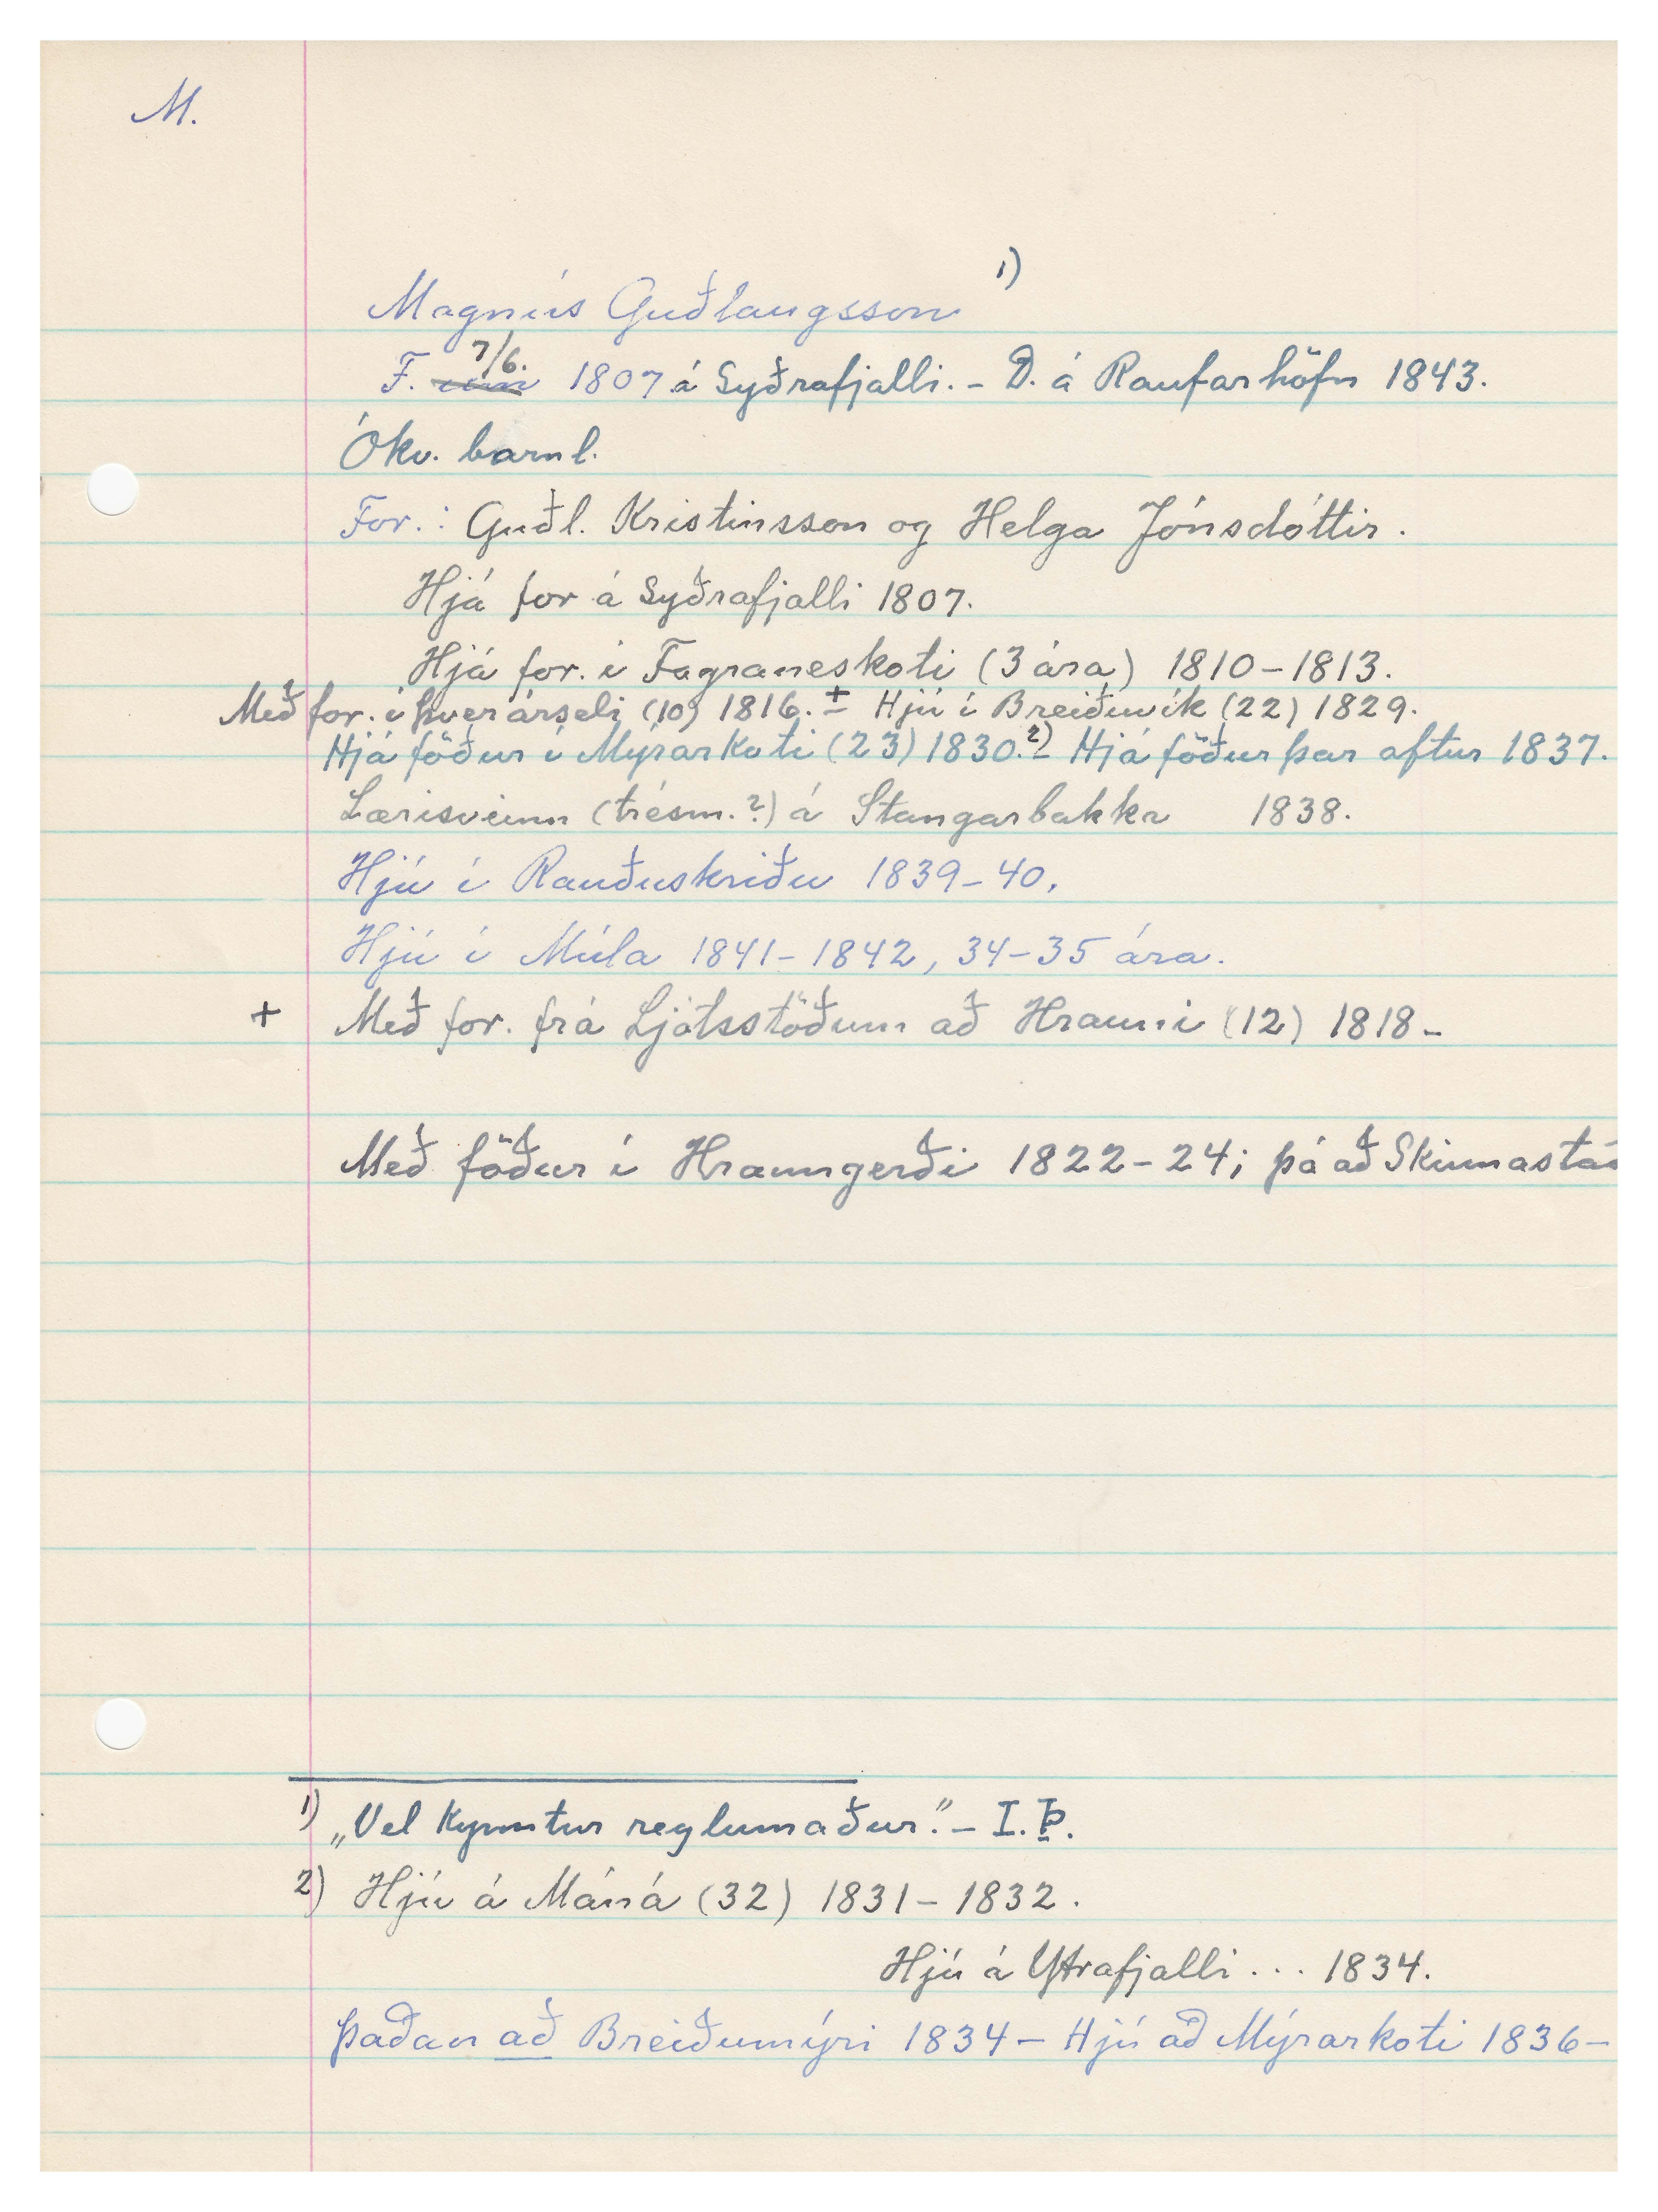 M.
Magnús Guðlaugsson 1)
F. 7/6. 1807 á Syðrafjalli. - D. á Raufarhöfn 1843.
Ókv. barnl.
For.: Guðl. Kristinsson og Helga Jónsdóttir.
Hjá for á Syðrafjalli 1807.
Hjá for. í Fagraneskoti (3 ára) 1810-1813.
Með for. í Þverárseli (10) 1816. + - Hjú í Breiðuvík (22) 1829.
Hjá föður í Mýrarkoti (23) 1830. 2) - Hjá föður þar aftur 1837.
Lærisveinn (trésm.?) á Stangarbakka 1838.
Hjú í Rauðuskriðu 1839-40.
Hjú í Múla 1841-1842, 34-35 ára.
+ Með for. frá Ljótsstöðum að Hrauni (12) 1818-
Með föður í Hraungerði 1822-24; þá að Skinnastað
1) „Vel kynntur reglumaður.“ - I. Þ.
2) Hjú á Máná (32) 1831-1832.
Hjú á Ytrafjalli... 1834.
Þaðan að Breiðumýri 1834 - Hjú að Mýrarkoti 1836-